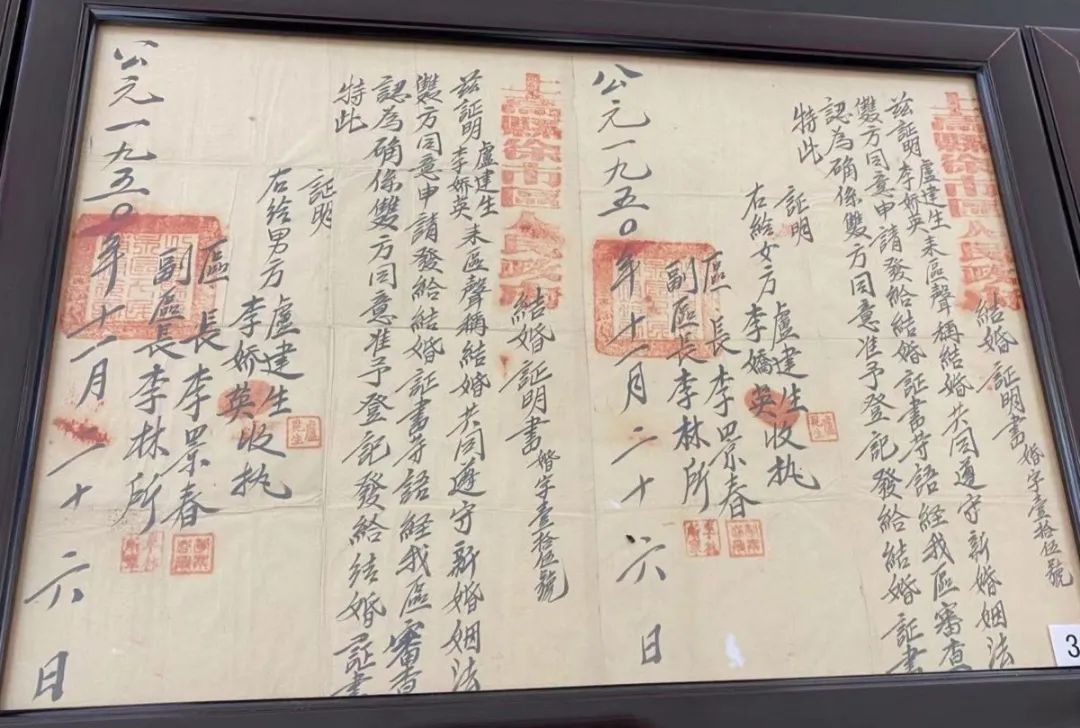 上高縣徐市區人民政府
結婚証明書 婚字壹拾伍號
兹証明盧建生李娇英来區聲稱結婚共同遵守新婚姻法
雙方同意申請發給結婚証書等語經我區審查
認為确係雙方同意准予登記發給結婚証書
特此
証明
右給女方盧建生李嬌英收执
區長李景春
副區長李林所
公元一九五〇年十一月二十六日
上高縣徐市區人民政府
結婚証明書 婚字壹拾伍號
兹証明盧建生李娇英来區聲稱結婚共同遵守新婚姻法
雙方同意申請發給結婚証書等語経我區審查
認為确係雙方同意准予登記發給结婚証書
特此
証明
右給男方盧建生李娇英收执
區長李景春
副區長李林所
公元一九五〇年十一月二十六日
3